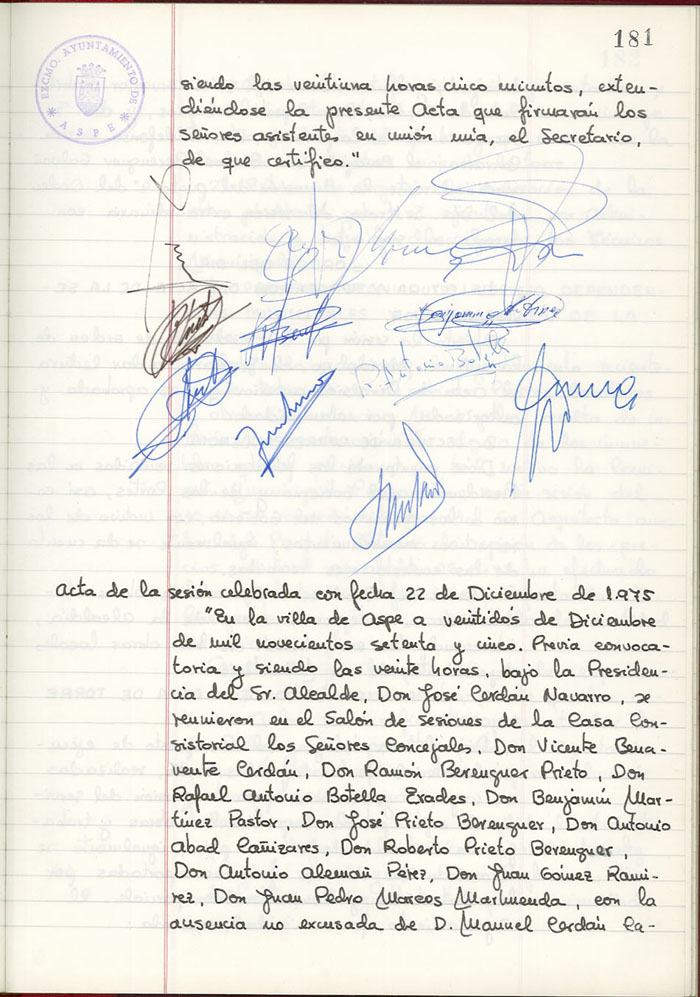 181
EXCMO. AYUNTAMIENTO DE
* ASPE *
siendo las veintiuna horas cinco minutos, exten-
diéndose la presente Acta que firmarán los
señores asistente, en unión mía, el Secretario,
de que certifico."
Benjamin Martinez
R. Antonio Botella
Acta de la sesión celebrada con fecha 22 de Diciembre de 1.975
"En la villa de Aspe a veintidós de Diciembre
de mil novecientos setenta y cinco. Previa convoca-
toria y siendo las veinte horas, bajo la Presiden-
cia del Sr. Alcalde, Don José Cerdán Navarro, se
reunieron en el Salón de Sesiones de la Casa Con-
sistorial los Señores Concejales, Don Vicente Bena-
vente Cerdán, Don Ramón Berenguer Prieto, Don
Rafael Antonio Botella Erades, Don Benjamín Mar-
tínez Pastor, Don José Prieto Berenguer, Don Antonio
Abad Cañizares, Don Roberto Prieto Berenguer,
Don Antonio Alemañ Pérez, Don Juan Gómez Rami-
rez, Don Juan Pedro Marcos Marhuenda, con la
ausencia no excusada de D. Manuel Cerdán Ca-